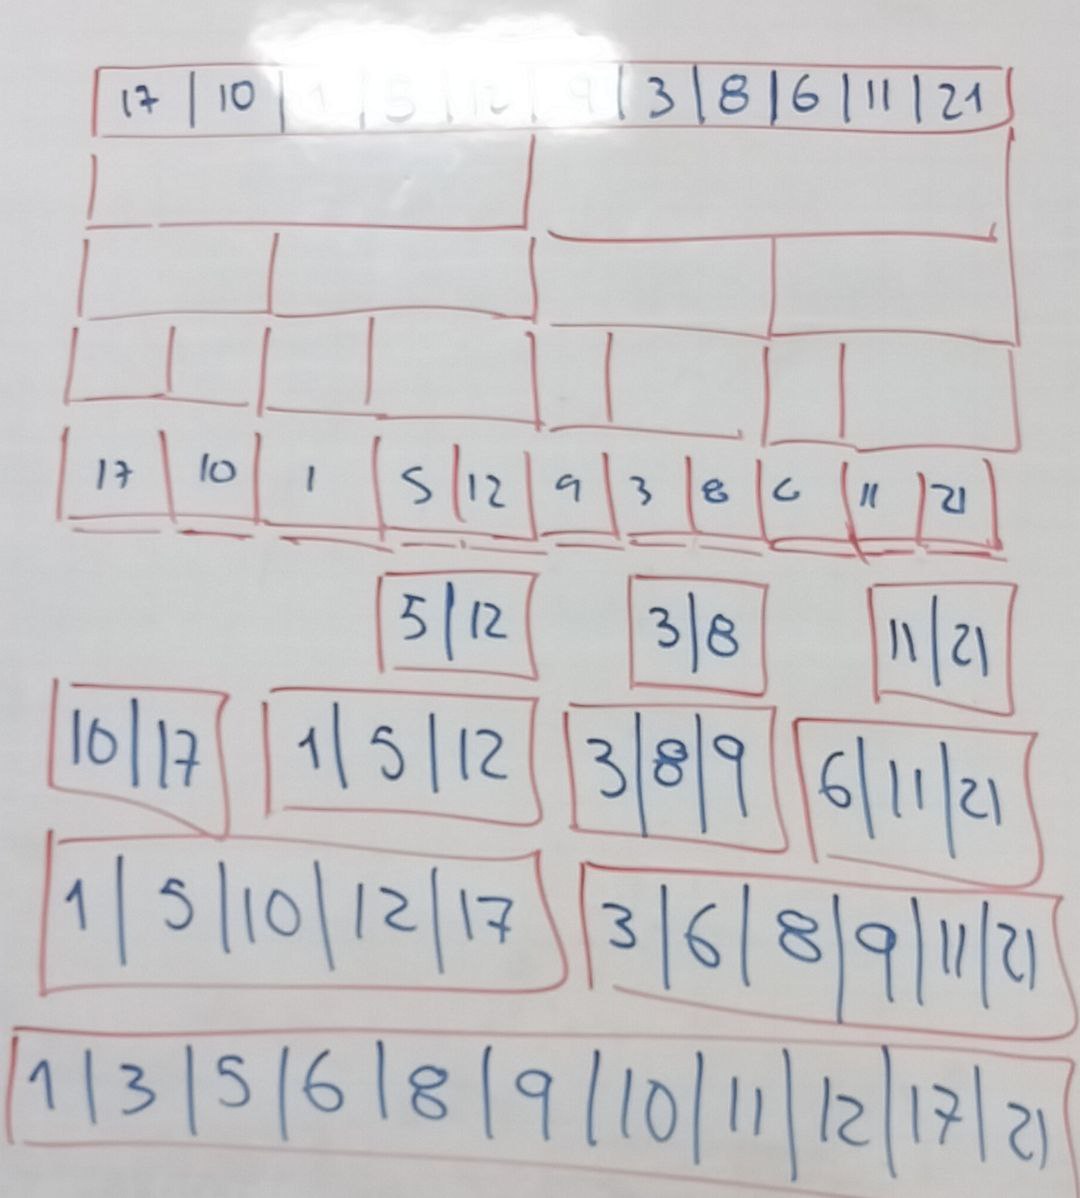 17 | 10 | 1 | 5 | 12 | 9 | 3 | 8 | 6 | 11 | 21
17 | 10 | 1 | 5 | 12 | 9 | 3 | 8 | 6 | 11 | 21
5 | 12 3 | 8 11 | 21
10 | 17 1 | 5 | 12 3 | 8 | 9 6 | 11 | 21
1 | 5 | 10 | 12 | 17 3 | 6 | 8 | 9 | 11 | 21
1 | 3 | 5 | 6 | 8 | 9 | 10 | 11 | 12 | 17 | 21